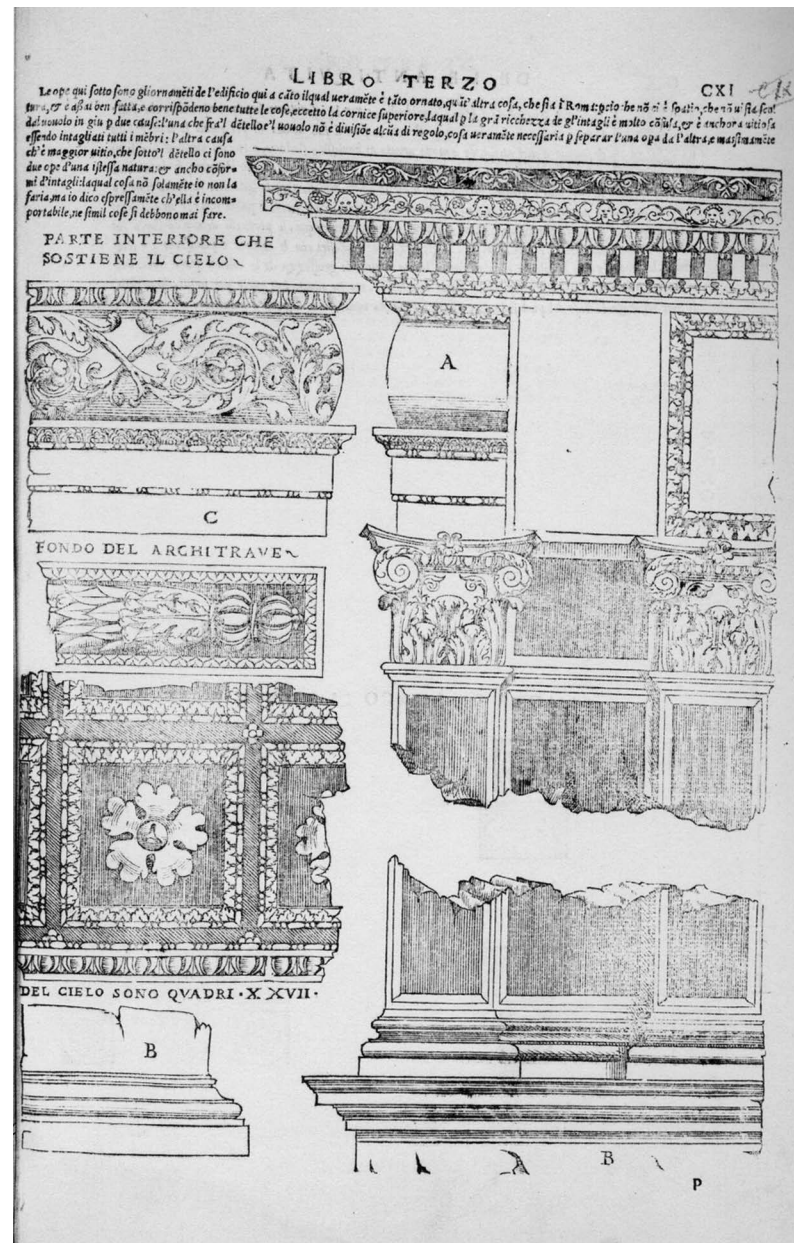 LIBRO TERZO
CXI
Le ope qui sotto sono gli ornamẽti de l'edificio qui a cãto ilqual ueramẽte è tãto ornato, qu ãt'altra cosa, che sia ĩ Roma: ꝑcio che nõ ci è spatio, che nõ ui sia scol
tura, & è aßai ben fatta, e corrispõdeno bene tutte le cose, eccetto la cornice superiore, laqual p la grã ricchezza de gl'intagli è molto cõfusa, & è anchora uitiosa
dal uouolo in giu p due cause: l'una che fra'l dẽtello e'l uouolo nõ è diuisiõe alcũa di regolo, cosa ueramẽte necessaria p separar l'una opa da l'altra, e massimamẽte
essendo intagliati tutti i mẽbri: l'altra causa
ch'è maggior uitio, che sotto'l dẽtello ci sono
due ope d'una istessa natura: & ancho cõfor=
mi d'intagli: laqual cosa nõ solamẽte io non la
faria, ma io dico espressamẽte ch'ella è incom=
portabile, ne simil cose si debbono mai fare.
PARTE INTERIORE CHE
SOSTIENE IL CIELO
A
C
FONDO DEL ARCHITRAVE
DEL CIELO SONO QVADRI · XXVII ·
B
B
P